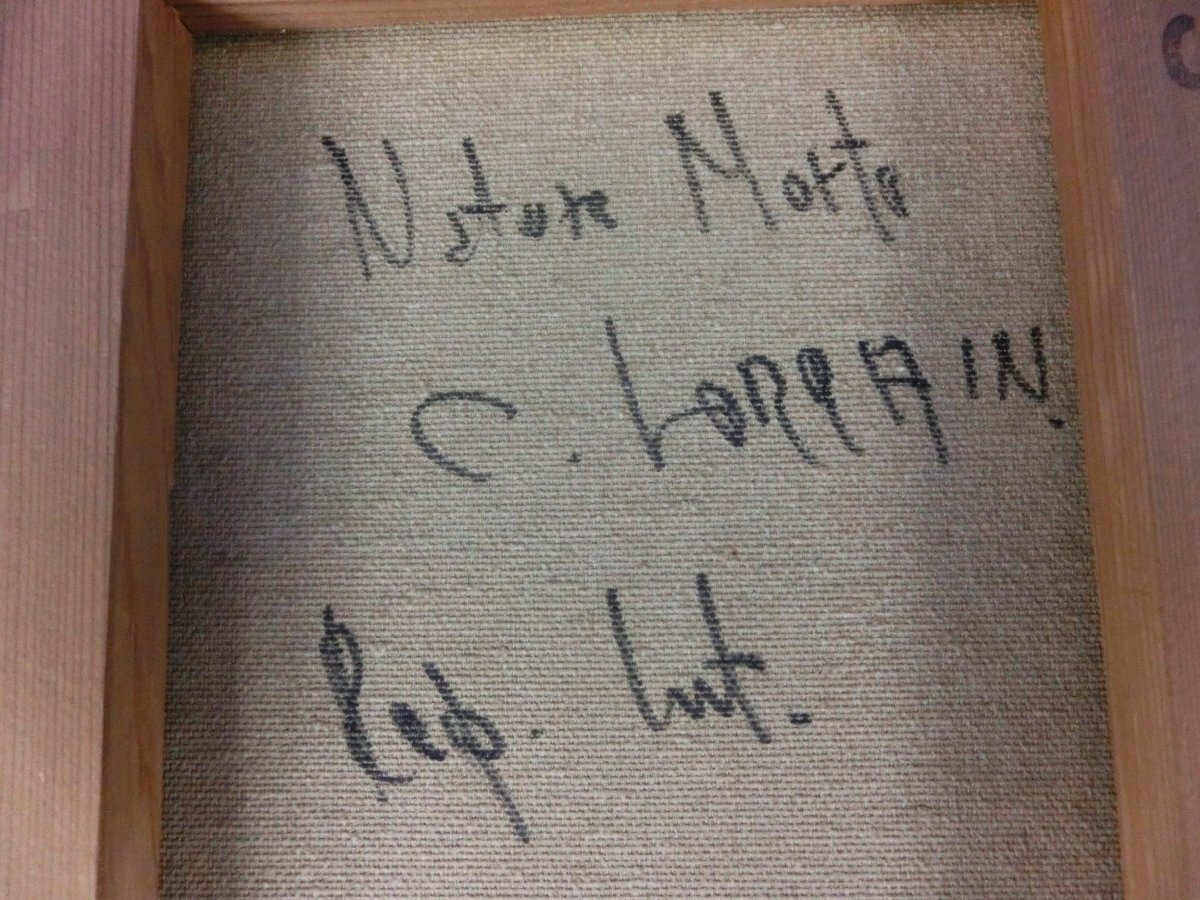 Nature Morte
C. LORRAIN.
Rep.